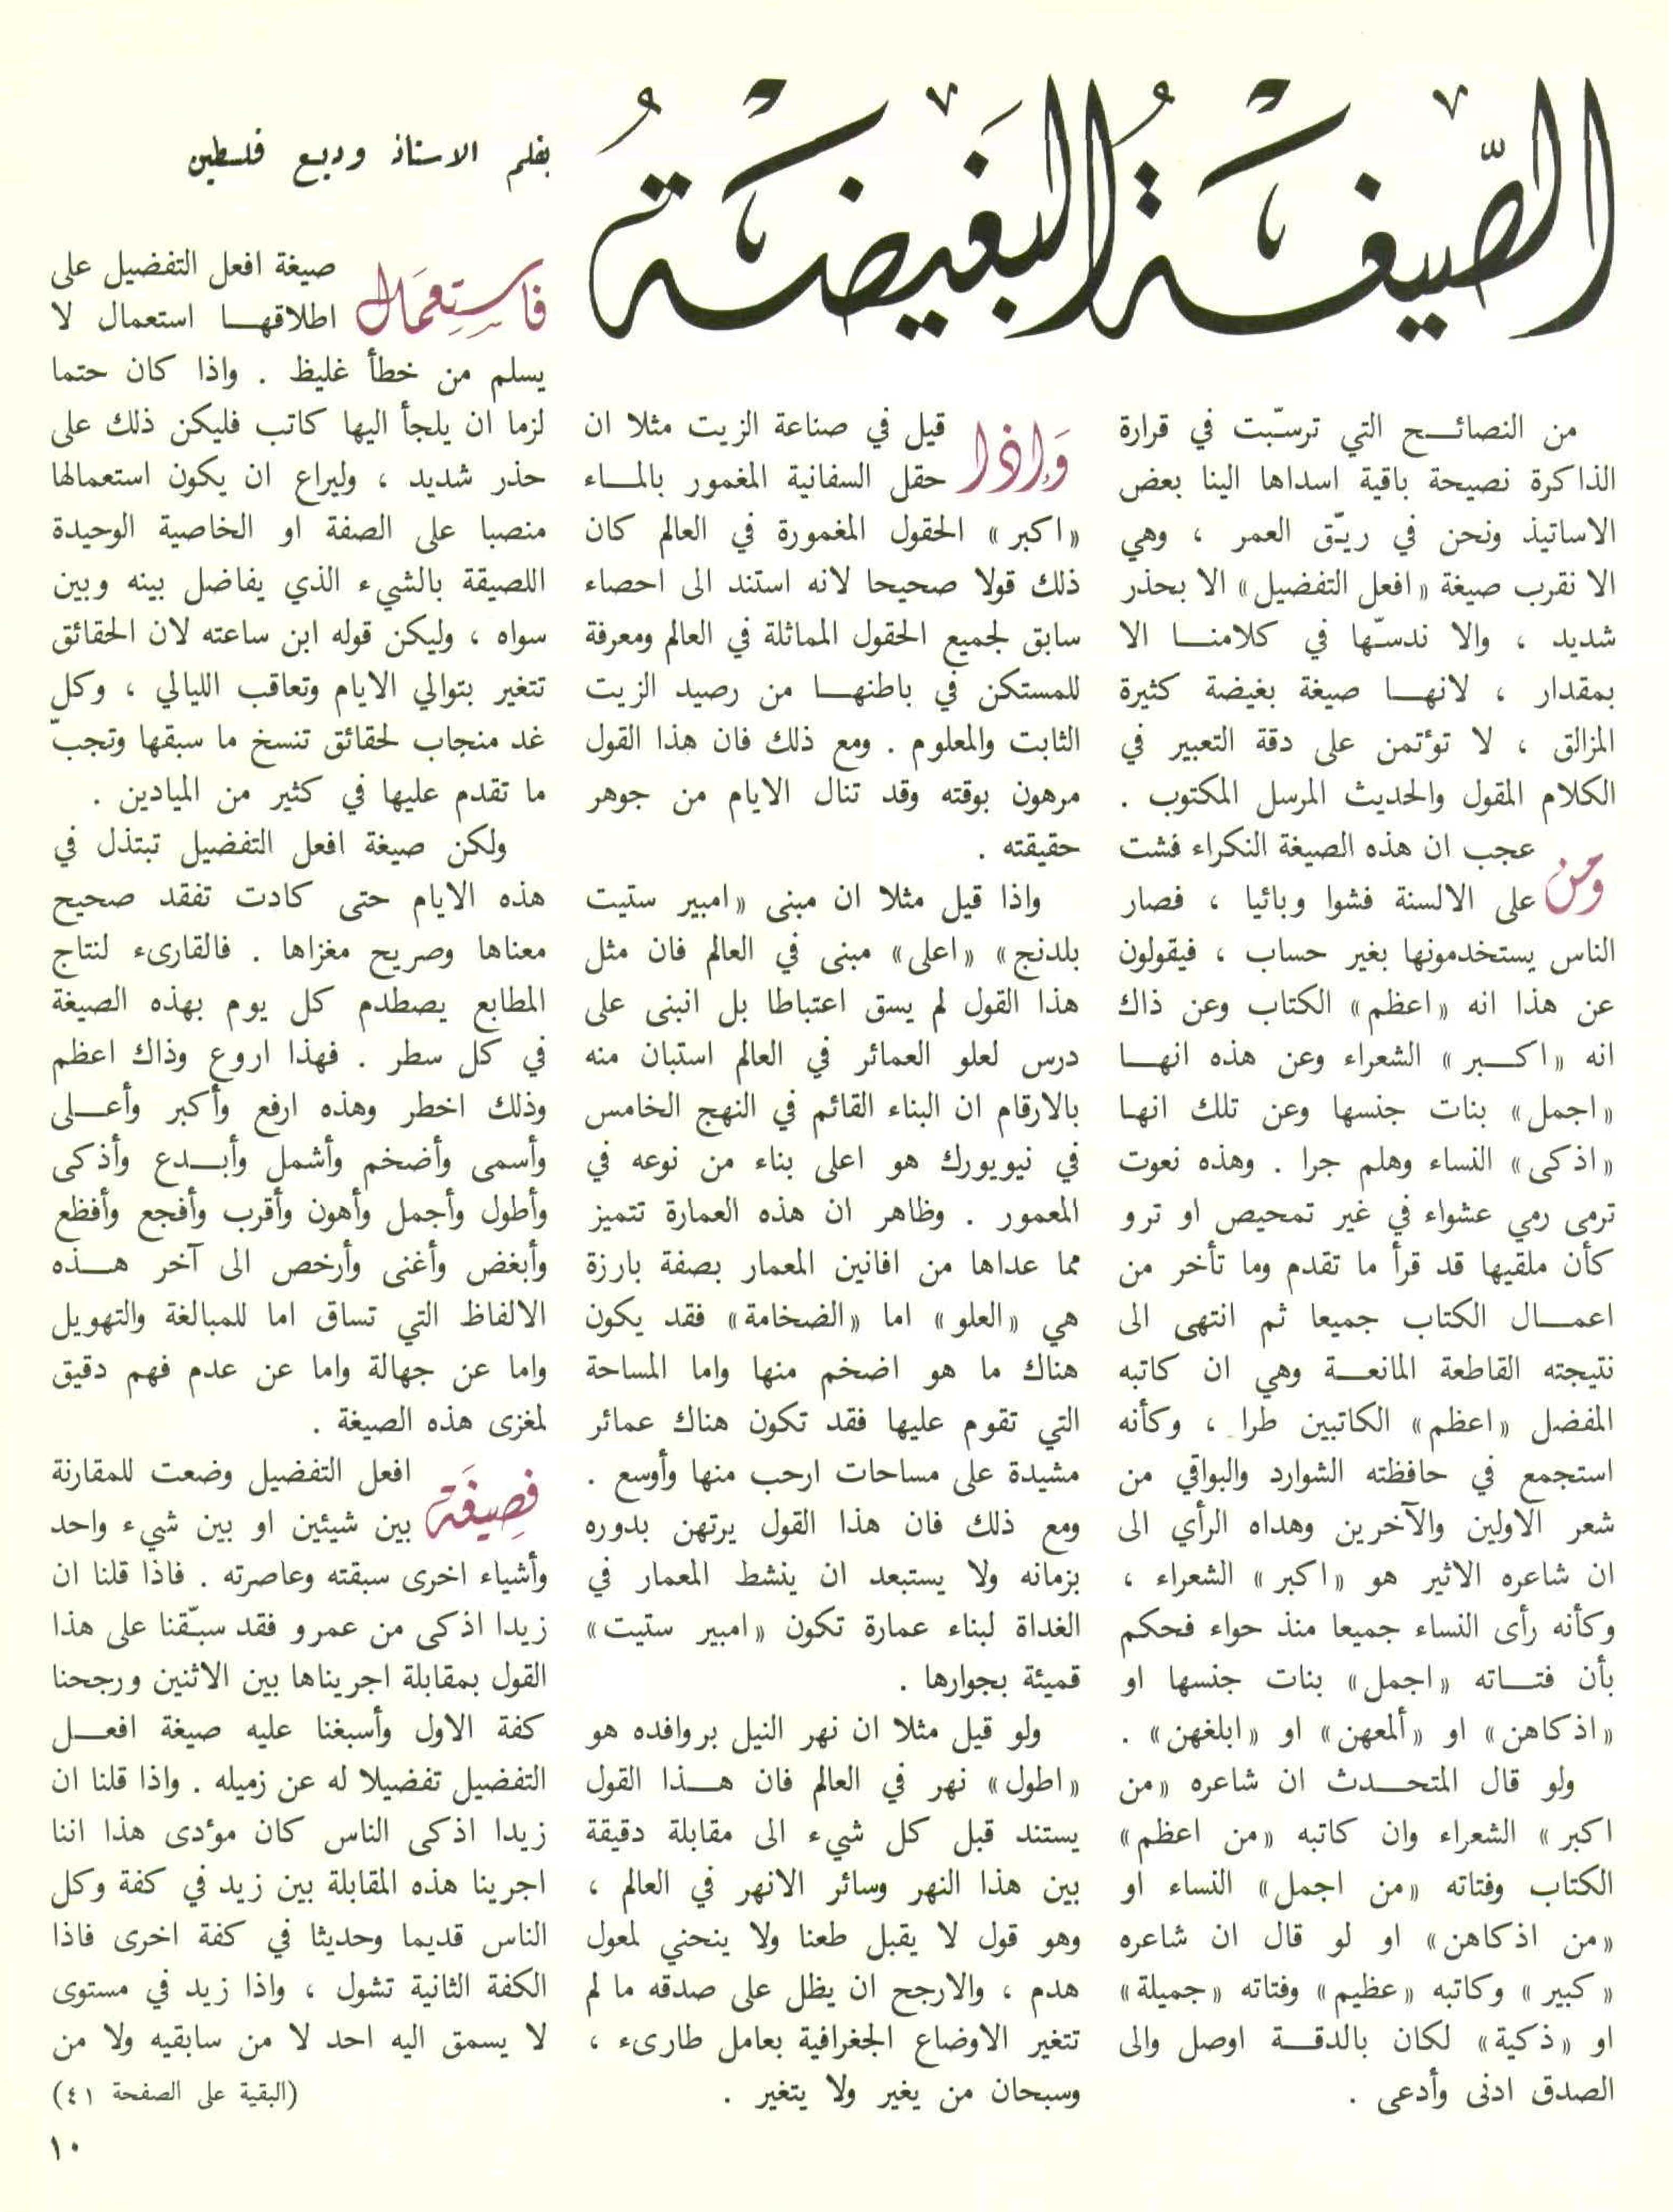 الصّيغَةُ البَغيضَةُ
بقلم الاستاذ وديع فلسطين
من النصائح التي ترسّبت في قرارة
الذاكرة نصيحة باقية اسداها الينا بعض
الاساتيذ ونحن في ريّق العمر ، وهي
الا نقرب صيغة «افعل التفضيل» الا بحذر
شديد ، والا ندسّها في كلامنا الا
بمقدار ، لانها صيغة بغيضة كثيرة
المزالق ، لا تؤتمن على دقة التعبير في
الكلام المقول والحديث المرسل المكتوب .
ومن عجب ان هذه الصيغة النكراء فشت
على الالسنة فشوا وبائيا ، فصار
الناس يستخدمونها بغير حساب ، فيقولون
عن هذا انه «اعظم» الكتاب وعن ذاك
انه «اكبر» الشعراء وعن هذه انها
«اجمل» بنات جنسها وعن تلك انها
«اذكى» النساء وهلم جرا . وهذه نعوت
ترمى رمي عشواء في غير تمحيص او ترو
كأن ملقيها قد قرأ ما تقدم وما تأخر من
اعمال الكتاب جميعا ثم انتهى الى
نتيجته القاطعة المانعة وهي ان كاتبه
المفضل «اعظم» الكاتبين طرا ، وكأنه
استجمع في حافظته الشوارد والبواقي من
شعر الاولين والآخرين وهداه الرأي الى
ان شاعره الاثير هو «اكبر» الشعراء ،
وكأنه رأى النساء جميعا منذ حواء فحكم
بأن فتاته «اجمل» بنات جنسها او
«اذكاهن» او «ألمعهن» او «ابلغهن» .
ولو قال المتحدث ان شاعره «من
اكبر» الشعراء وان كاتبه «من اعظم»
الكتاب وفتاته «من اجمل» النساء او
«من اذكاهن» او لو قال ان شاعره
«كبير» وكاتبه «عظيم» وفتاته «جميلة»
او «ذكية» لكان بالدقة اوصل والى
الصدق ادنى وأدعى .
وَإذا قيل في صناعة الزيت مثلا ان
حقل السفانية المغمور بالماء
«اكبر» الحقول المغمورة في العالم كان
ذلك قولا صحيحا لانه استند الى احصاء
سابق لجميع الحقول المماثلة في العالم ومعرفة
للمستكن في باطنها من رصيد الزيت
الثابت والمعلوم . ومع ذلك فان هذا القول
مرهون بوقته وقد تنال الايام من جوهر
حقيقته .
واذا قيل مثلا ان مبنى «امبير ستيت
بلدنج» «اعلى» مبنى في العالم فان مثل
هذا القول لم يسق اعتباطا بل انبنى على
درس لعلو العمائر في العالم استبان منه
بالارقام ان البناء القائم في النهج الخامس
في نيويورك هو اعلى بناء من نوعه في
المعمور . وظاهر ان هذه العمارة تتميز
مما عداها من افانين المعمار بصفة بارزة
هي «العلو» اما «الضخامة» فقد يكون
هناك ما هو اضخم منها واما المساحة
التي تقوم عليها فقد تكون هناك عمائر
مشيدة على مساحات ارحب منها وأوسع .
ومع ذلك فان هذا القول يرتهن بدوره
بزمانه ولا يستبعد ان ينشط المعمار في
الغداة لبناء عمارة تكون «امبير ستيت»
قميئة بجوارها .
ولو قيل مثلا ان نهر النيل بروافده هو
«اطول» نهر في العالم فان هذا القول
يستند قبل كل شيء الى مقابلة دقيقة
بين هذا النهر وسائر الانهر في العالم ،
وهو قول لا يقبل طعنا ولا ينحني لمعول
هدم ، والارجح ان يظل على صدقه ما لم
تتغير الاوضاع الجغرافية بعامل طارىء ،
وسبحان من يغير ولا يتغير .
فاستِعمَال صيغة افعل التفضيل على
اطلاقها استعمال لا
يسلم من خطأ غليظ . واذا كان حتما
لزما ان يلجأ اليها كاتب فليكن ذلك على
حذر شديد ، وليراع ان يكون استعمالها
منصبا على الصفة او الخاصية الوحيدة
اللصيقة بالشيء الذي يفاضل بينه وبين
سواه ، وليكن قوله ابن ساعته لان الحقائق
تتغير بتوالي الايام وتعاقب الليالي ، وكل
غد منجاب لحقائق تنسخ ما سبقها وتجبّ
ما تقدم عليها في كثير من الميادين .
ولكن صيغة افعل التفضيل تبتذل في
هذه الايام حتى كادت تفقد صحيح
معناها وصريح مغزاها . فالقارىء لنتاج
المطابع يصطدم كل يوم بهذه الصيغة
في كل سطر . فهذا اروع وذاك اعظم
وذلك اخطر وهذه ارفع وأكبر وأعلى
وأسمى وأضخم وأشمل وأبدع وأذكى
وأطول وأجمل وأهون وأقرب وأفجع وأفظع
وأبغض وأغنى وأرخص الى آخر هذه
الالفاظ التي تساق اما للمبالغة والتهويل
واما عن جهالة واما عن عدم فهم دقيق
لمغزى هذه الصيغة .
فصِيغَة افعل التفضيل وضعت للمقارنة
بين شيئين او بين شيء واحد
وأشياء اخرى سبقته وعاصرته . فاذا قلنا ان
زيدا اذكى من عمرو فقد سبّقنا على هذا
القول بمقابلة اجريناها بين الاثنين ورجحنا
كفة الاول وأسبغنا عليه صيغة افعل
التفضيل تفضيلا له عن زميله . واذا قلنا ان
زيدا اذكى الناس كان مؤدى هذا اننا
اجرينا هذه المقابلة بين زيد في كفة وكل
الناس قديما وحديثا في كفة اخرى فاذا
الكفة الثانية تشول ، واذا زيد في مستوى
لا يسمق اليه احد لا من سابقيه ولا من
(البقية على الصفحة ٤١)
١٠